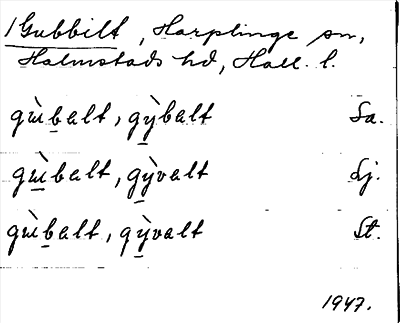 1 Gubbilt, Harplinge sn,
Halmstads hd, Hall. l.
gɯ̀balt, gỳbalt Sa.
gɯ̀balt, gỳvalt Lj.
gɯ̀balt, gỳvalt St.
1947.